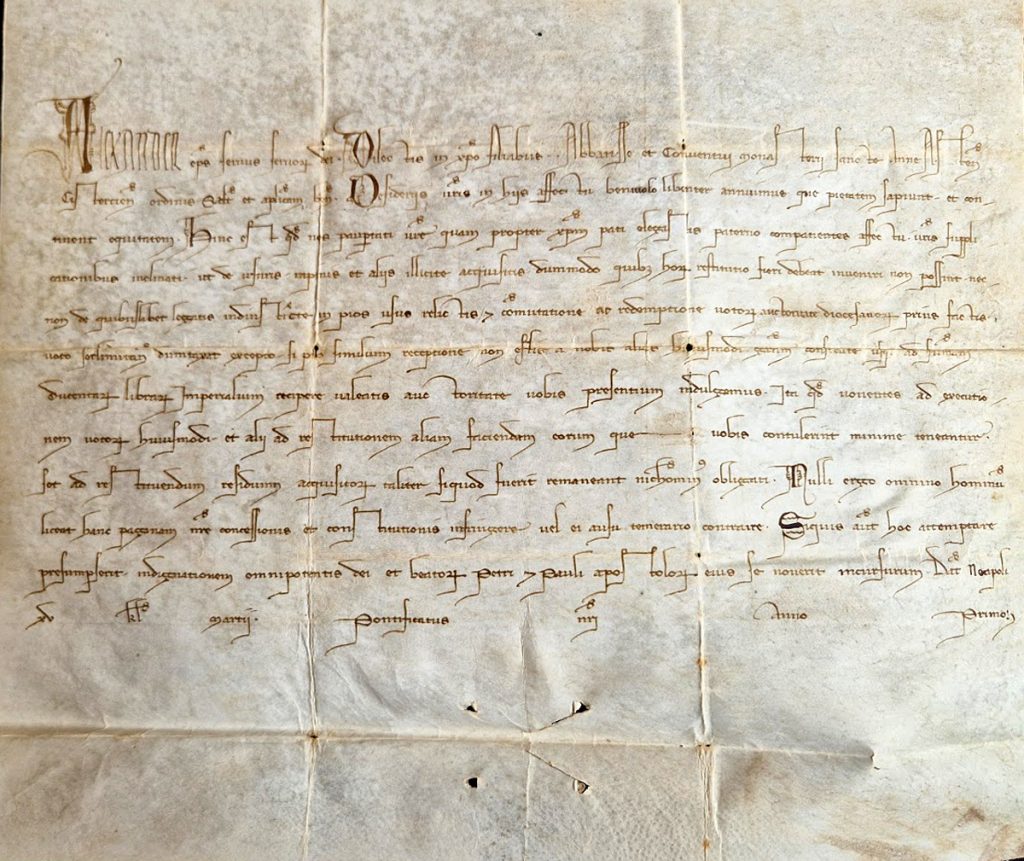 Alexander ep̄s servus servor̄ dei. Dilectis in xp̄o filiabus.. Abbatisse et Conventui monasterii sancte Anne Asten̄
Cistercien̄ ordinis Sal̄t et aplicam ben̄. Desideriis ur̄is in hiis affectu benivolo libenter annuimus que pietatem sapiunt. et con
tinent equitatem. Hinc est qd̄ nos paupertati ur̄e quam propter xp̄m pati elegistis paterno compatientes affectu. ur̄is suppli
cationibus inclinati. ut de usuris rapinis et aliis illicite acquisitis dummodo quibȝ hor̄ restitutio fieri debeat inveniri non possint. nec
non de quibuslibet legatis indistincte in pios usus relictis ⁊ comutatione ac redemptione votor̄ auctoritate diocesanor̄ prius factis.
voto Ier̄limitan̄ dumtaxat excepto si pro similium receptione non estis a nobis alias huiusmodi gr̄am consecute usq̄ ad summam
ducentar̄ librar̄ Imperialium recipere valeatis auctoritate vobis presentium indulgemus. Ita qd̄ voventes ad executio
nem votor̄ huiusmodi. et alii ad restitutionem aliam faciendam eorum que vobis contulerint minime teneantur.
set ad restituendum residuum acquisitor̄ taliter siquod fuerit remaneant nichomin̄ obligati. Nulli ergo omnino hominū
liceat hanc paginam nr̄e concessionis et constitutionis infringere vel ei ausu temerario contraire. Siquis aūt hoc attemptare
presumpserit. indignationem omnipotentis dei et beator̄ Petri ⁊ Pauli apostolor̄ eius se noverit incursurum. Dat̄ Neapoli
xv kl̄ Martii. Pontificatus nr̄i Anno Primo.